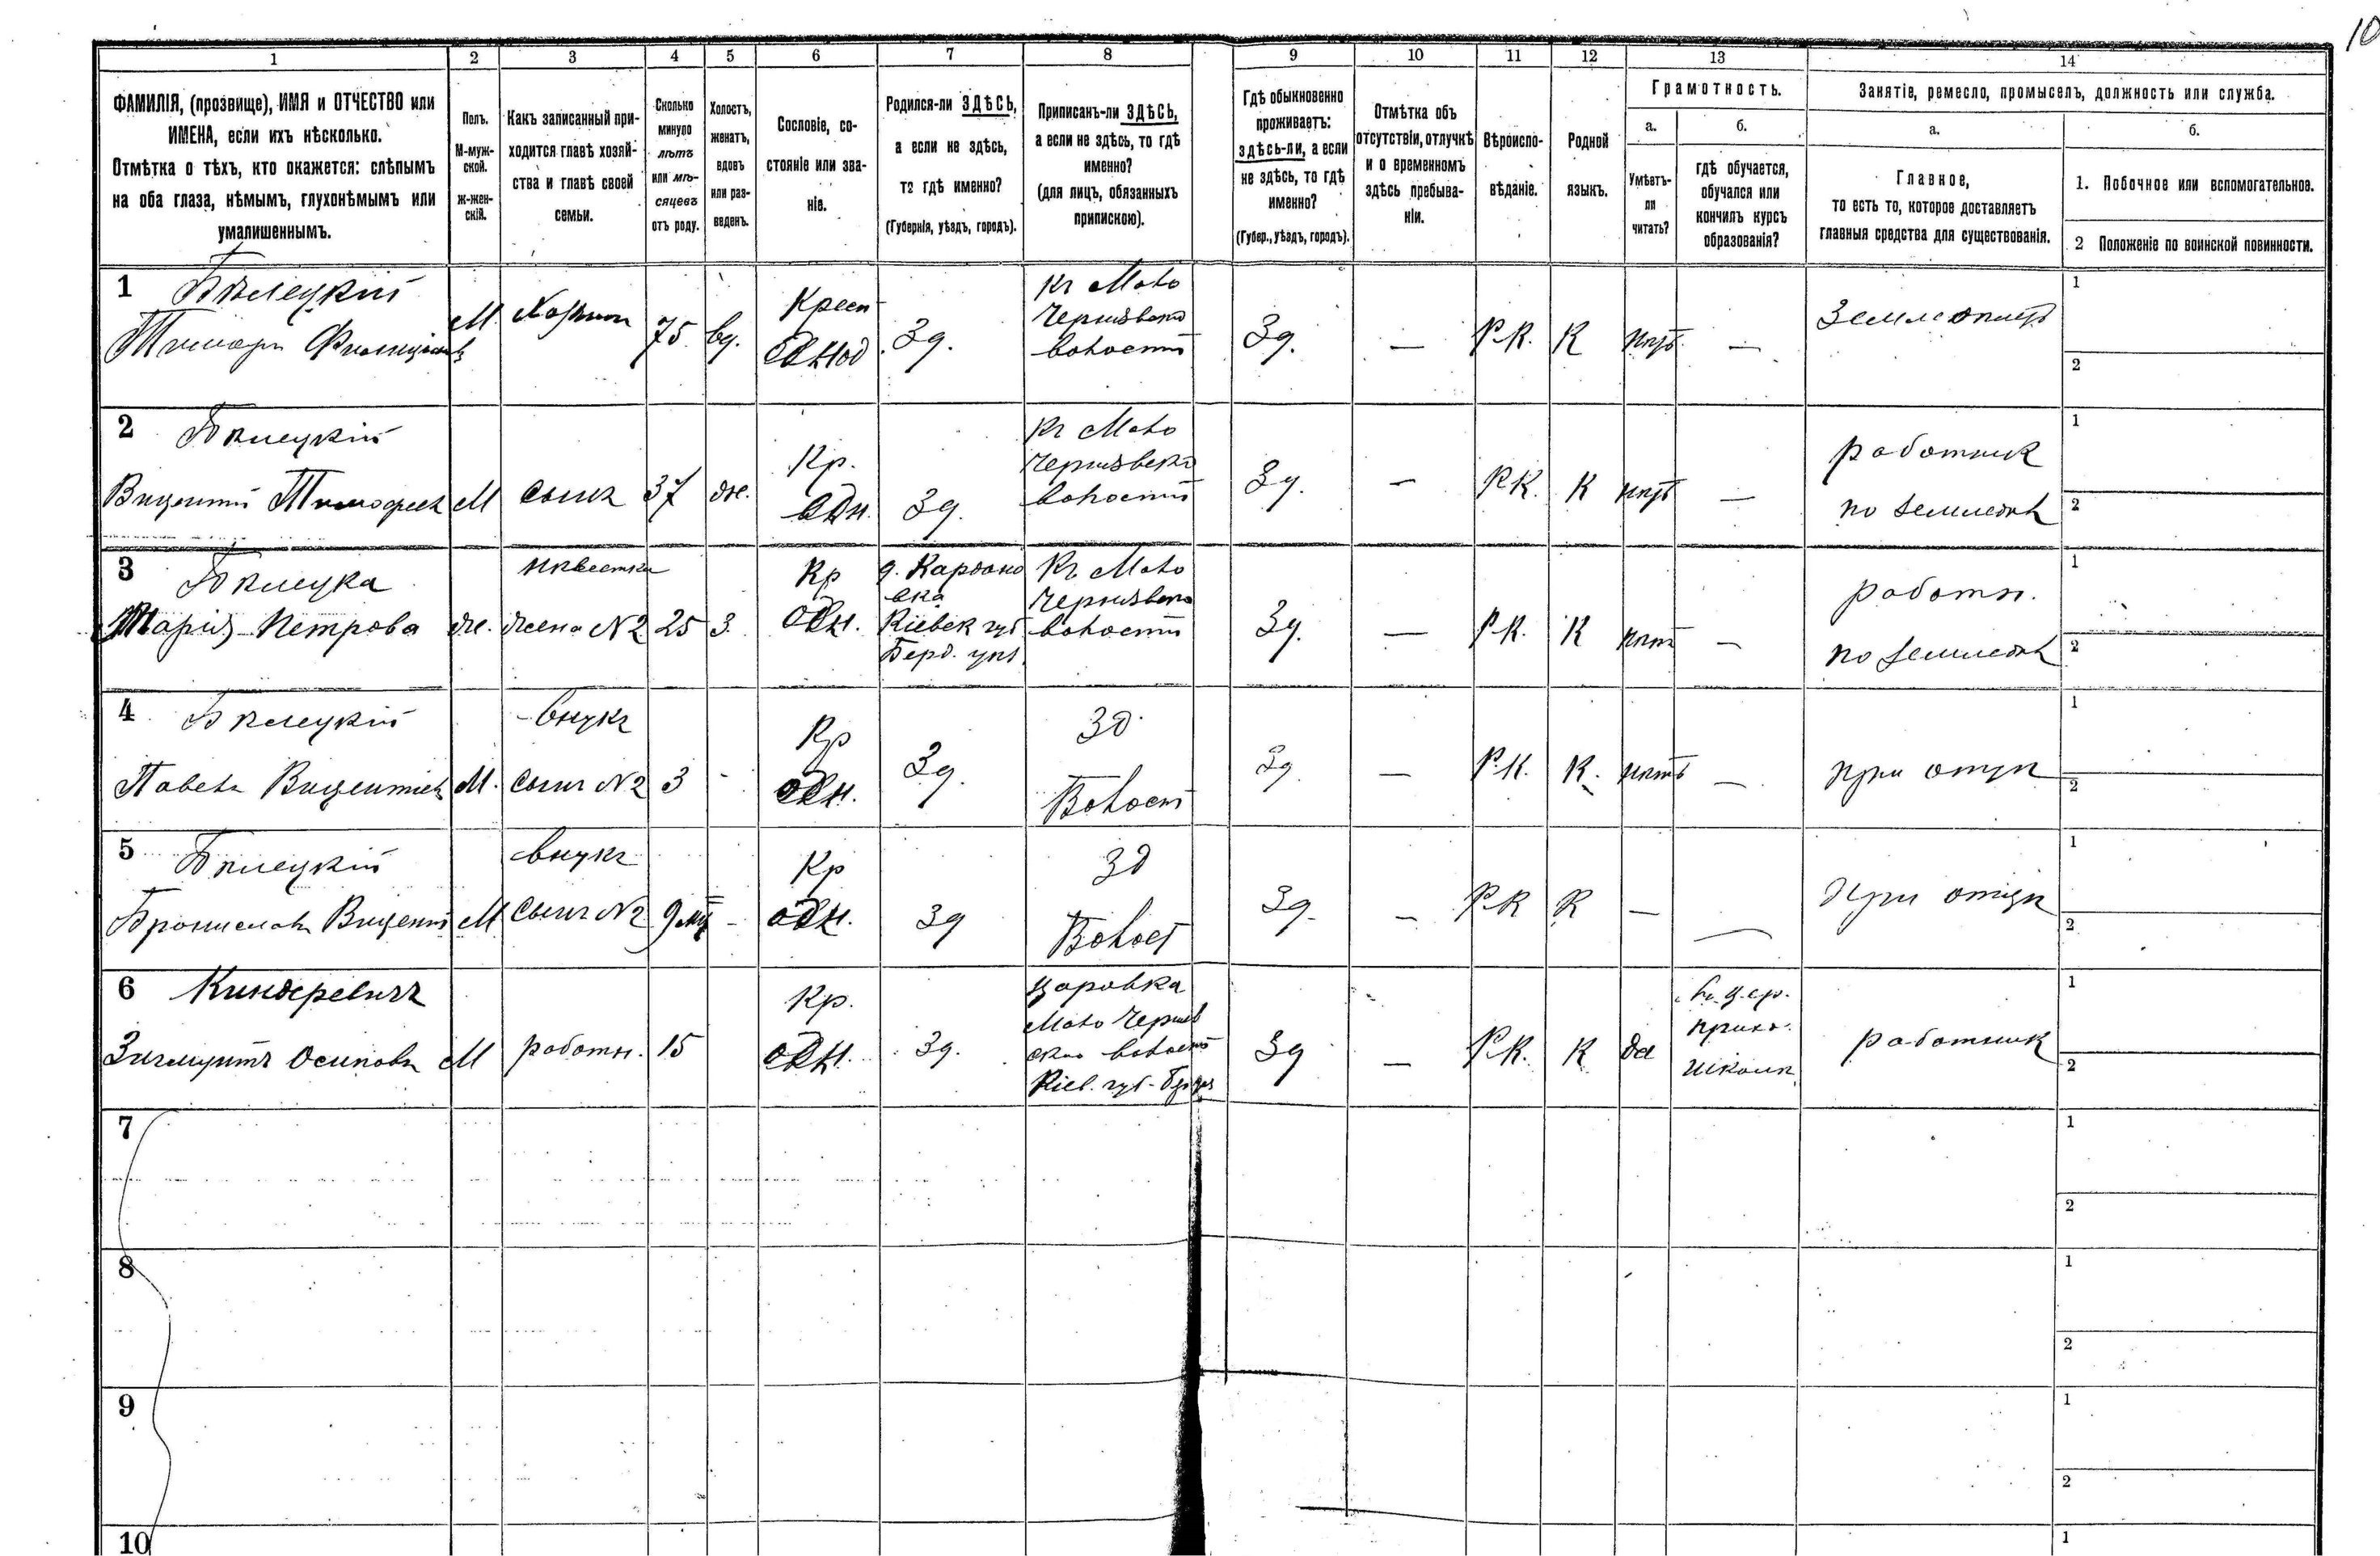 10
1 2 3 4 5 6 7 8 9 10 11 12 13 14
ФАМИЛІЯ, (прозвище), ИМЯ и ОТЧЕСТВО или
ИМЕНА, если ихъ нѣсколько.
Отмѣтка о тѣхъ, кто окажется: слѣпымъ
на оба глаза, нѣмымъ, глухонѣмымъ или
умалишеннымъ.
Полъ.
М-муж-
ской.
ж-жен-
скій.
Какъ записанный при-
ходится главѣ хозяй-
ства и главѣ своей
семьи.
Сколько
минуло
лѣтъ
или мѣ-
сяцевъ
отъ роду.
Холостъ,
женатъ,
вдовъ
или раз-
веденъ.
Сословіе, со-
стояніе или зва-
ніе.
Родился-ли ЗДѢСЬ,
а если не здѣсь,
то гдѣ именно?
(Губернія, уѣздъ, городъ).
Приписанъ-ли ЗДѢСЬ,
а если не здѣсь, то гдѣ
именно?
(для лицъ, обязанныхъ
припискою).
Гдѣ обыкновенно
проживаетъ:
здѣсь-ли, а если
не здѣсь, то гдѣ
именно?
(Губер., уѣздъ, городъ).
Отмѣтка объ
отсутствіи, отлучкѣ
и о временномъ
здѣсь пребыва-
ніи.
Вѣроиспо-
вѣданіе.
Родной
языкъ.
Грамотность.
а.
Умѣетъ-
ли
читать?
б.
гдѣ обучается,
обучался или
кончилъ курсъ
образованія?
Занятіе, ремесло, промыселъ, должность или служба.
а.
Главное,
то есть то, которое доставляетъ
главныя средства для существованія.
б.
1. Побочное или вспомогательное.
2 Положеніе по воинской повинности.
1 Бѣлецкій
М. 75 вд. Крест
Зд.
волости
Зд. — Р.К. К нѣтъ —
1
2
2 Бѣлецкій
Вицентій Тимофеев М сынъ 37 ж. Кр.
одн. Зд.
волости
Зд. — Р.К. К нѣтъ —
работник
по земледѣл
1
2
3 Бѣлецка
Марія Петрова ж.
невѣстка
жена N2 25 З. Кр
одн.
Киевск губ
Берд. уѣз.
волости
Зд. — Р.К. К нѣтъ —
работн.
по земледѣл
1
2
4 Бѣлецкій
Павелъ Вицентіев М.
внукъ
сынъ N2 3 - Кр
одн. Зд. Зд.
Волост
Зд. — Р.К. К. нѣтъ —
при отцѣ
1
2
5 Бѣлецкій
Брониславъ Вицент М
внукъ
сынъ N2 9 мц - Кр
одн. Зд Зд
Волост
Зд. — Р.К К — —
При отцѣ
1
2
6 Киндеревичъ
Зигмунтъ Осиповъ М работн. 15 Кр.
одн. Зд.
Киев. губ.
Зд — Р.К. К да
прихо.
школѣ
работник
1
2
7
1
2
8
1
2
9
1
2
10
1